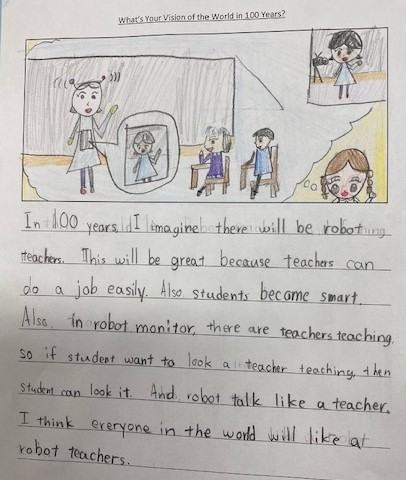 What's Your Vision of the World in 100 Years?
In 100 years, I imagine there will be robot
teachers. This will be great because teachers can
do a job easily. Also students become smart.
Also, in robot monitor, there are teachers teaching.
so if student want to look a teacher teaching, then
student can look it. And robot talk like a teacher.
I think everyone in the world will like at
robot teachers.